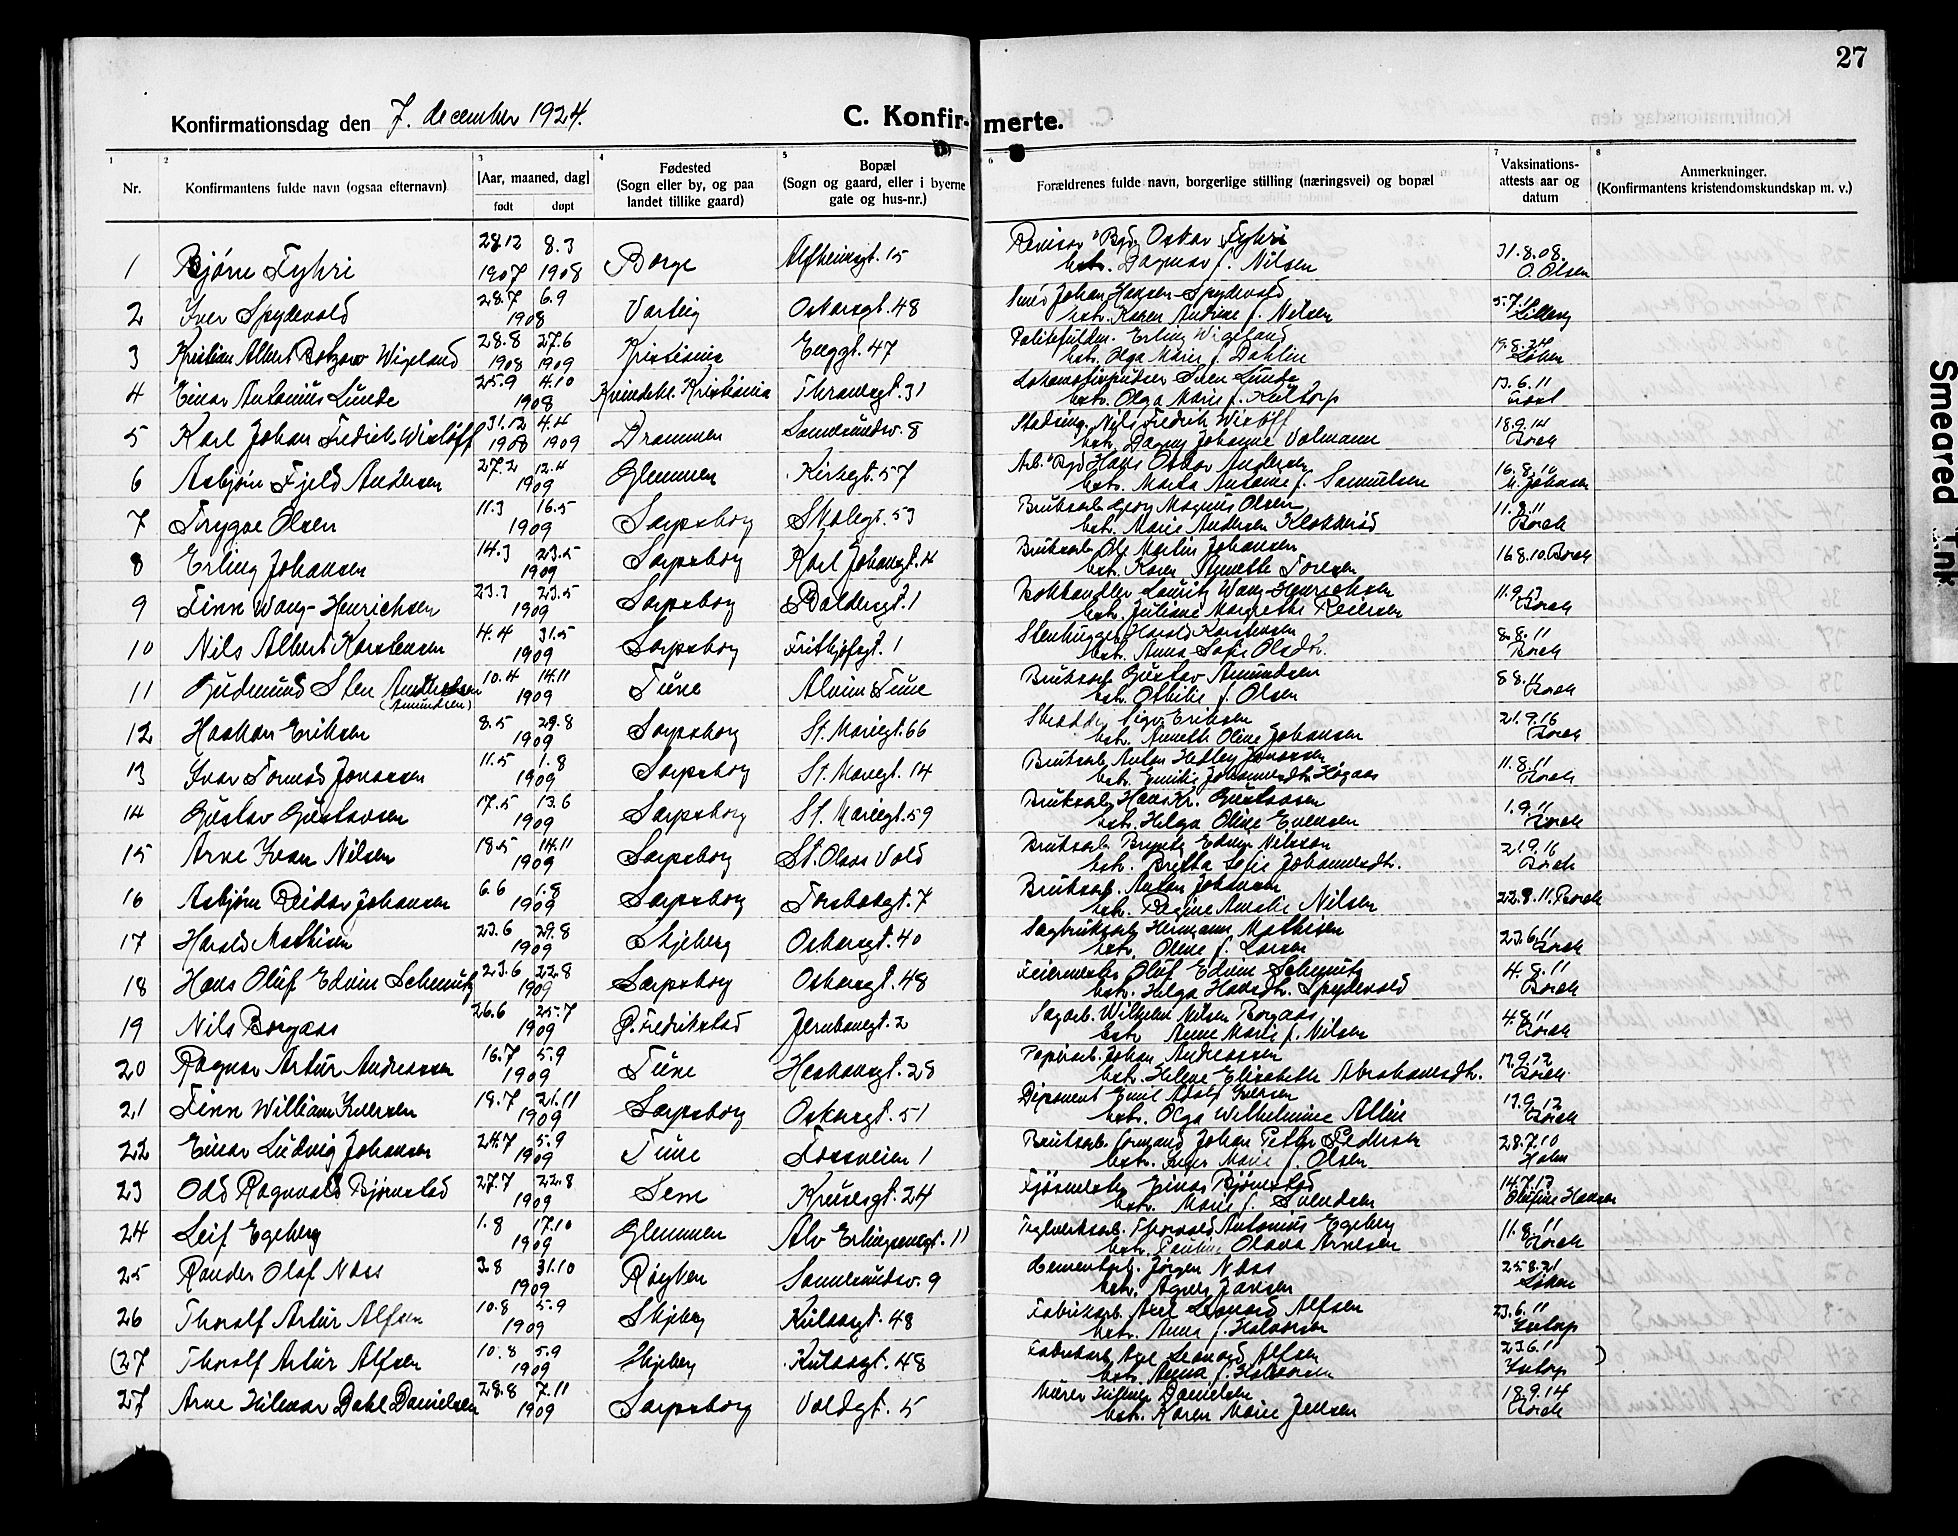 27
Konfirmationsdag den 7. december 1924.
C. Konfir-merte.
1 2 3 4 5 6 7 8
Nr.
Konfirmantens fulde navn (ogsaa efternavn)
[Aar, maaned, dag]
født døpt
Fødested
(Sogn eller by, og paa
landet tillike gaard)
Bopæl
(Sogn og gaard, eller i byerne
gate og hus-nr.)
Forældrenes fulde navn, borgerlige stilling (næringsvei) og bopæl
Vaksinations-
attests aar og
datum
Anmerkninger.
(Konfirmantens kristendomskundskap m. v.)
1 Bjørn Fyhri 28.12 1907 8.3 1908 Borge Alfheimgt. 15 Revisor Oskar Fyhri
hstr. Dagmar f. Nilsen 31.8.08. O. Olsen
2 Iver Spydevold 28.7 6.9 1908 Varteig Oskarsgt. 48 Smed Johan Hansen Spydevold
hstr. Karen Andrine f. Nilsen
3 Kristian Albert Wigeland 28.8 1908 27.6 1909 Kristiania Enggt. 47 Erling Wigeland
hstr. Olga Marie f. Dahlin 19.8.24 Løken
4 Einar Antonius Lunde 25.9 4.10 1908 Kvindekl. Kristiania Thranesgt. 31 Lokomotivpudser Sven Lunde
hstr. Olga Marie f. 13.6.11
5 Karl Johan Fredrik Wixtöff 31.12 1908 4.4 1909 Drammen Sannesundsv. 8 Nils Fredrik Wixtöff
hstr. Dagny Johanne Valmann 18.9.14 Borch
6 Asbjørn Fjeld Andersen 27.2 12.4 1909 Glemmen Kirkegt. 57 Hans Oskar Andersen
hstr. Marta Antonie f. Samuelsen 16.8.10 M. Johansen
7 Trygve Olsen 11.3 16.5 1909 Sarpsborg Skolegt. 53 Bruksarb. Georg Magnus Olsen
hstr. Marie Andersen 11.8.11 Borch
8 Erling Johansen 14.3 23.5 1909 Sarpsborg Karl Johansgt. 4 Bruksarb. Ole Martin Johansen
hstr. Karen Annette Toresen 16.8.10. Borch
9 Finn Wang-Henrichsen 23.3 23.5 1909 Sarpsborg Baldersgt. 1 Bokhandler Lauritz Wang-Henrichsen
hstr. Juliane Margrethe 11.9.13 Borch
10 Nils Albert Karstensen 4.4 31.5 1909 Sarpsborg Fritjofsgt. 1 Stenhugger Harald Karstensen
hstr. Anna Sofie Olsdtr. 8.8.11 Borch
11 Gudmund Sten (Amundsen) 10.4 14.11 1909 Tune Alvim Tune Bruksarb. Gustav Amundsen
hstr. Othilie f. Olsen 8.8.11 Borch
12 Haakon Eriksen 8.5 29.8 1909 Sarpsborg St. Mariegt. 66 Skrædder Sigv. Eriksen
hstr. Annette Oline Johansen 21.9.16 Borch
13 Ivar Tormod Jonassen 11.5 1.8 1909 Sarpsborg St. Mariegt. 14 Bruksarb. Anton Hedley Jonassen
hstr. Emilie Høgaas 11.8.11 Borch
14 Gustav Gustavsen 17.5 13.6 1909 Sarpsborg St. Mariegt. 59 Bruksarb. Hans Kr. Gustavsen
hstr. Helga Oline Evensen 1.9.11 Borch
15 Arne Ivan Nilsen 18.5 14.11 1909 Sarpsborg St. Olavs Vold Bruksarb. Edvin Nilsson
hstr. Britta Sofie Johannesdtr. 21.9.16 Borch
16 Asbjørn Reidar Johansen 6.6 1.8 1909 Sarpsborg Torsbakgt. 7 Bruksarb. Anton Johansen
hstr. Regine Amalie Nilsen 22.8.11. Borch
17 Harald Mathisen 23.6 29.8 1909 Skjeberg Oskarsgt. 40 Sagbruksarb. Hermann Mathisen
hstr. Oline f. Larsen 23.6.11 Borch
18 Hans Oluf Edvin Schmutz 23.6 22.8 1909 Sarpsborg Oskarsgt. 48 Feiermester Oluf Edvin Schmutz
hstr. Helga Hansdtr. Spydevold 4.8.11 Borch
19 Nils Borgaas 26.6 25.7 1909 Ø. Fredrikstad Jernbanegt. 2 Sagarb. Wilhelm Nilsen Borgaas
hstr. Anne Marie f. Nilsen 4.8.11 Borch
20 Ragnar Artur Andreassen 16.7 5.9 1909 Tune Haakonsgt. 28 Papirarb. Johan Andreassen
hstr. Helene Elisabeth Abrahamsdtr. 17.9.12 Borch.
21 Finn William Iversen 19.7 21.11 1909 Sarpsborg Oskarsgt. 51 Disponent Emil Adolf Iversen
hstr. Olga Wilhelmine 17.9.12 Borch
22 Einar Ludvig Johansen 24.7 5.9 1909 Tune Fossveien 1 Bruksarb. formand Johan Petter Pedersen
hstr. Inger Marie f. Olsen 28.7.10 Holm
23 Odd Ragnvald Bjørnstad 27.7 22.8 1909 Sem Krusesgt. 24 Fjøsmester Einar Bjørnstad
hstr. Marie f. Svendsen 14.7.13 Olufine Hansen
24 Leif Egeberg 1.8 17.10 1909 Glemmen Alv Erlingsensgt. 11 Teglverksarb. Thorvald Antonius Egeberg
hstr. Pauline Olava Arnesen 11.8.11 Borch
25 Rander Olaf Næss 3.8 31.10 1909 Røyken Sannesundsv. 9 Cementarb. Jørgen Næss
hstr. Agnes Jansen 25.8.21 Løken
26 Thoralf Artur Alfsen 10.8 5.9 1909 Skjeberg Kulaasgt. 48 Fabrikarb. Axel Leonard Alfsen
hstr. Anna f. Halvorsen 23.6.11
(27 Thoralf Artur Alfsen 10.8 5.9 1909 Skjeberg Kulaasgt. 48 Fabrikarb. Axel Leonard Alfsen
hstr. Anna f. Halvorsen 23.6.11 )
27 Arne Hilmar Dahl Danielsen 28.8 7.11 1909 Sarpsborg Voldgt. 5 Murer Hilmar Danielsen
hstr. Karen Marie Jensen 18.9.14 Borch
Smeared Ink